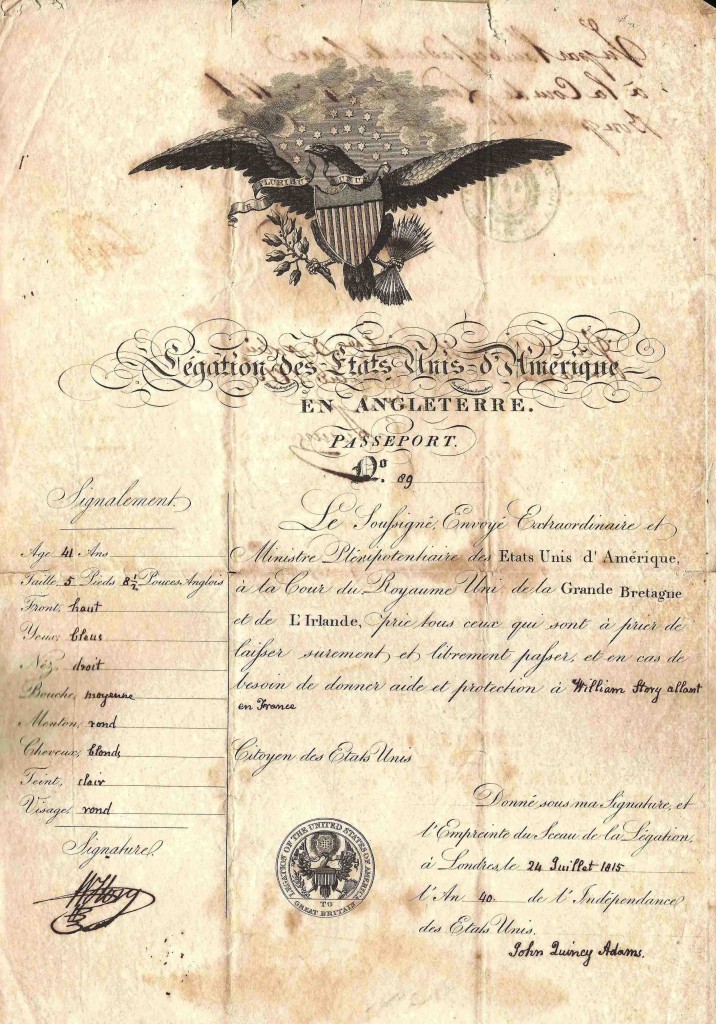 E PLURIBUS UNUM
Légation des Etats Unis d'Amérique
EN ANGLETERRE.
PASSEPORT.
No. 89
Signalement.
Age, 41 Ans
Taille, 5 Pieds 8 1/2 Pouces Anglois
Front, haut
Yeux, bleus
Néz, droit
Bouche, moyenne
Menton, rond
Cheveux, blonds
Teint, clair
Visage, rond
Signature.
WStory
Le Soussigné, Envoyé Extraordinaire et
Ministre Plénipotentiaire des Etats Unis d'Amérique,
à la Cour du Royaume Uni de la Grande Bretagne
et de L'Irlande, prie tous ceux qui sont à prier de
laisser surement et librement passer, et en cas de
besoin de donner aide et protection à William Story allant
en France
Citoyen des Etats Unis
Donné sous ma Signature, et
l'Empreinte du Sceau de la Légation,
à Londres, le 24 Juillet 1815
l'An 40. de l'Indépendance
des Etats Unis.
John Quincy Adams.
LEGATION OF THE UNITED STATES OF AMERICA
TO
GREAT BRITAIN